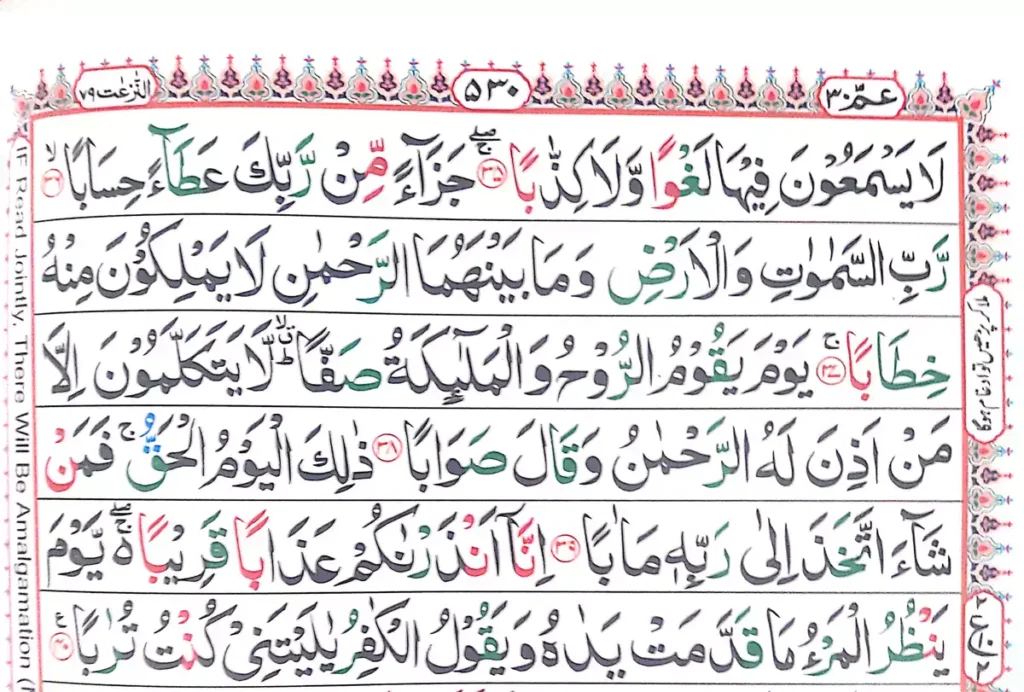 النّٰزعٰت ٧٩
٥٣٠
عمّ ٣٠
لَا يَسْمَعُوْنَ فِيْهَا لَغْوًا وَّلَا كِذّٰبًا ۚۖ ﴿۳۵﴾ جَزَآءً مِّنْ رَّبِّكَ عَطَآءً حِسَابًا ۙ ﴿۳۶﴾
رَّبِّ السَّمٰوٰتِ وَالْاَرْضِ وَمَا بَيْنَهُمَا الرَّحْمٰنِ لَا يَمْلِكُوْنَ مِنْهُ
خِطَابًا ۚ ﴿۳۷﴾ يَوْمَ يَقُوْمُ الرُّوْحُ وَالْمَلٰٓئِكَةُ صَفًّا ۙۗؕ لَّا يَتَكَلَّمُوْنَ اِلَّا
مَنْ اَذِنَ لَهُ الرَّحْمٰنُ وَقَالَ صَوَابًا ﴿۳۸﴾ ذٰلِكَ الْيَوْمُ الْحَقُّ ۚ فَمَنْ
شَآءَ اتَّخَذَ اِلٰى رَبِّهٖ مَاٰبًا ﴿۳۹﴾ اِنَّاۤ اَنْذَرْنٰكُمْ عَذَابًا قَرِيْبًا ۚۖ۬ يَّوْمَ
يَنْظُرُ الْمَرْءُ مَا قَدَّمَتْ يَدٰهُ وَيَقُوْلُ الْكٰفِرُ يٰلَيْتَنِىْ كُنْتُ تُرٰبًا ﴿۴۰﴾
IF Read Jointly, There Will Be Amalgamation
ملا کر پڑھیں تو ادغام ہوگا